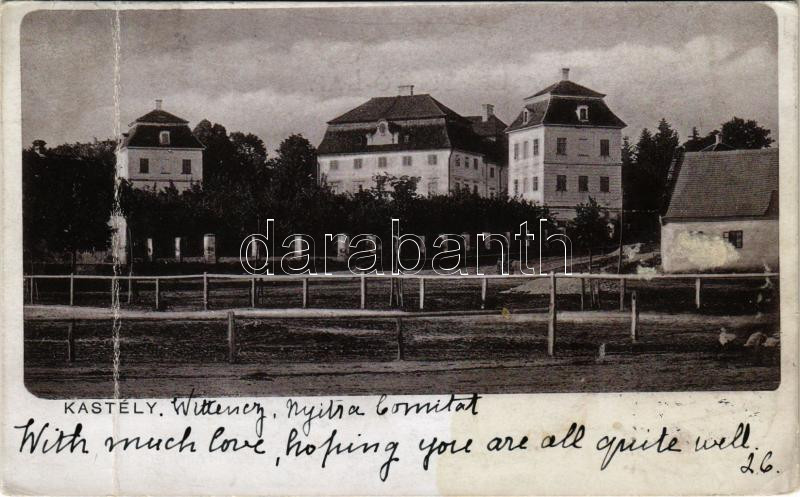 darabanth
KASTÉLY. Wittencz, Nyitra Comitat
With much love, hoping you are all quite well.
26.